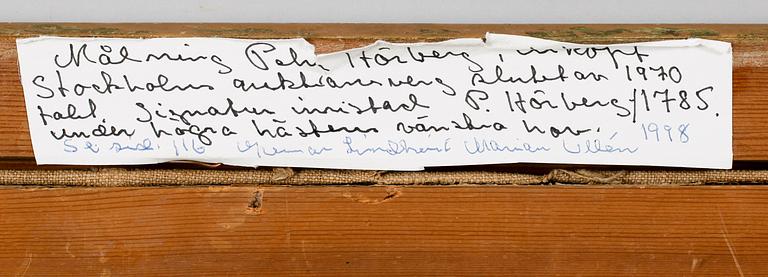 Målning Pehr Hörberg, inköpt
Stockholms auktionsverg slutetav 1970
talet. Signatur inristad P. Hörberg/1785.
under högra hästens vänstra hov.
Se sid. 116 Gunnar Lindkvist Marian Ullén 1998